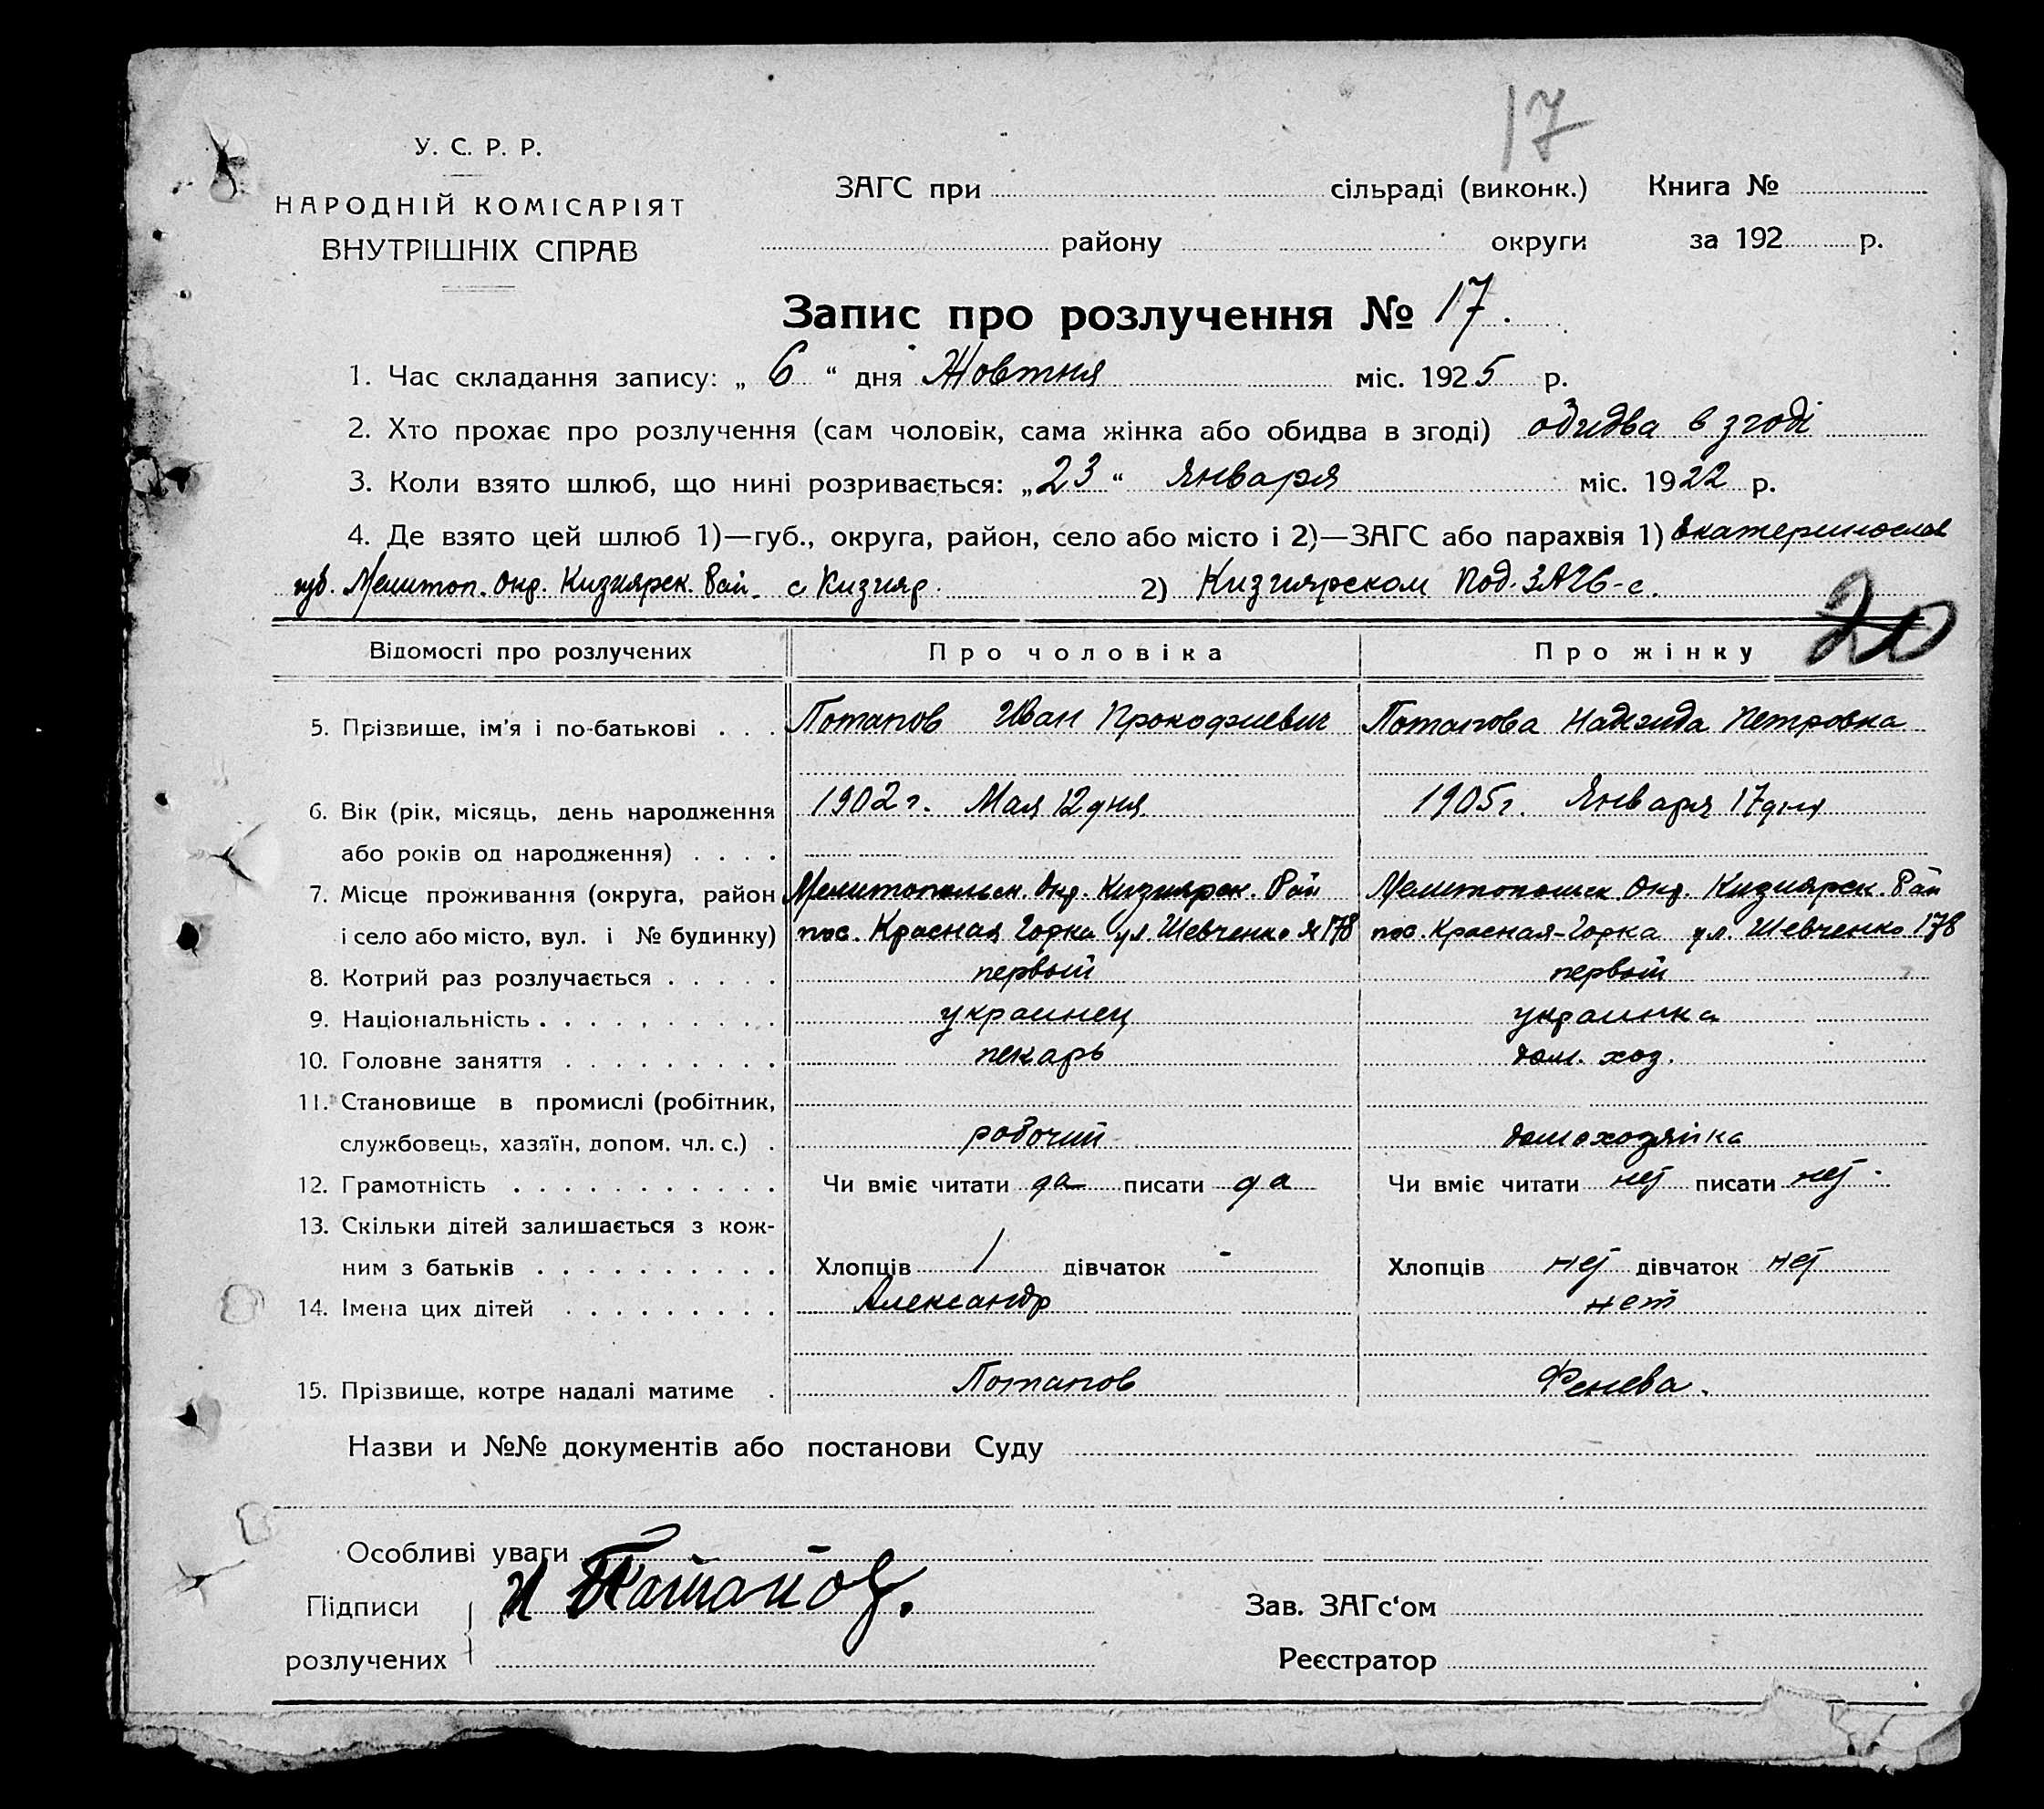 17
У. С. Р. Р.
НАРОДНІЙ КОМІСАРІЯТ
ВНУТРІШНІХ СПРАВ
ЗАГС при сільраді (виконк.) Книга №
району округи за 192 р.
Запис про розлучення № 17.
1. Час складання запису: „ 6 “ дня Жовтня міс. 1925 р.
2. Хто прохає про розлучення (сам чоловік, сама жінка або обидва в згоді) обидва в згоді
3. Коли взято шлюб, що нині розривається: „23“ Января міс. 1922 р.
4. Де взято цей шлюб 1)—губ., округа, район, село або місто і 2)—ЗАГС або парахвія 1) Екатеринослав
губ. Мелитоп. Окр. Кизиярск. Рай. с Кизияр. 2) Кизиярском Под. ЗАГС-е.
20
Відомості про розлучених Про чоловіка Про жінку
5. Прізвище, ім'я і по-батькові . . . Потапов Иван Прокофиевич Потапова Надежда Петровна
6. Вік (рік, місяць, день народження 1902 г. Мая 12 дня 1905 г. Января 17 дня
або років од народження) . . . .
7. Місце проживання (округа, район Мелитопольск. Окр. Кизиярск. Рай Мелитопольск. Окр. Кизиярск. Рай
і село або місто, вул. і № будинку) пос. Красная Горка ул. Шевченко № 178 пос. Красная-Горка ул. Шевченко 178
8. Котрий раз розлучається . . . . . первый первый
9. Національність . . . . . . . . . . украинец украинка
10. Головне заняття . . . . . . . . . пекарь дом. хоз.
11. Становище в промислі (робітник,
службовець, хазяїн, допом. чл. с.) . робочий домохозяйка
12. Грамотність . . . . . . . . . . . Чи вміє читати да писати да Чи вміє читати нет писати нет.
13. Скільки дітей залишається з кож-
ним з батьків . . . . . . . . . . Хлопців 1 дівчаток - Хлопців нет дівчаток нет
14. Імена цих дітей . . . . . . . . . Александр нет
15. Прізвище, котре надалі матиме . Потапов Фенева.
Назви и №№ документів або постанови Суду
Особливі уваги
Підписи И Потапов. Зав. ЗАГс‘ом
розлучених Реєстратор